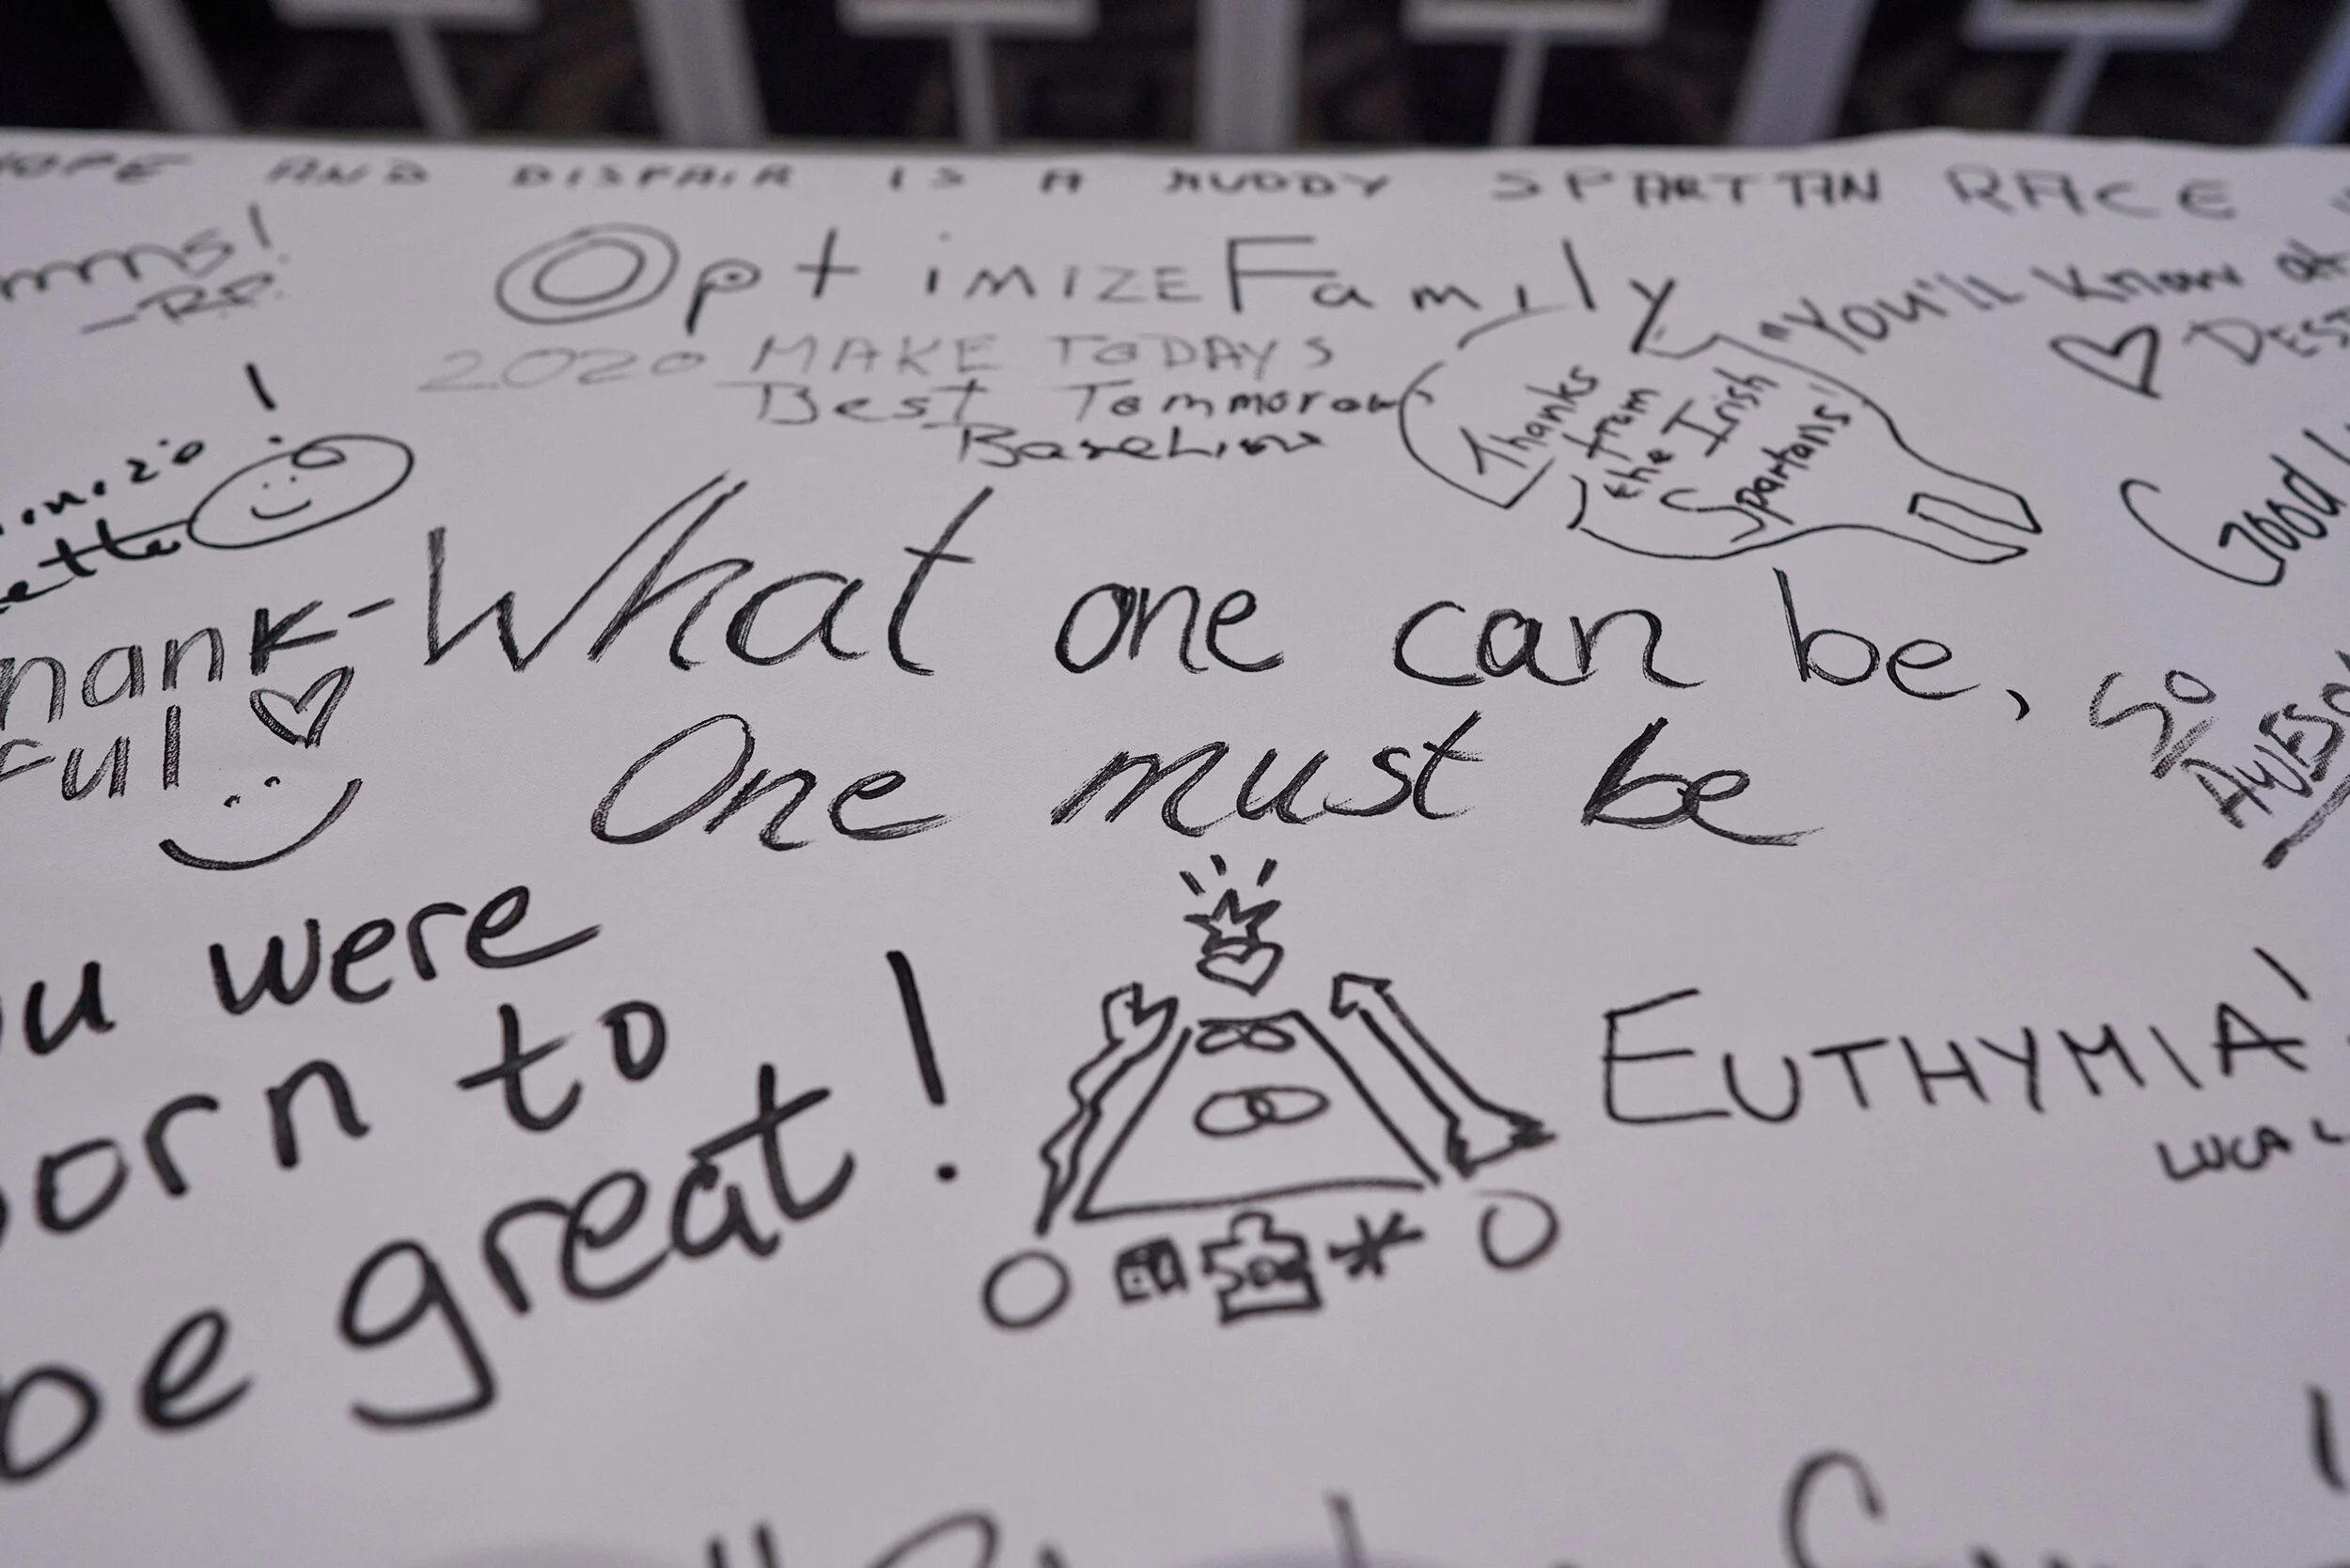 HOPE AND DISPAIR IS A MUDDY SPARTTAN RACE
-R.P.
OptimizeFamily
2020 MAKE TODAYS
Best Tommorows
Baseline
Thanks
from
the Irish
Spartans!
"You'll know at
Good
What one can be,
One must be
hank-
ful
So
AWESO
u were
orn to
be great!
EUTHYMIA!
LUCA L